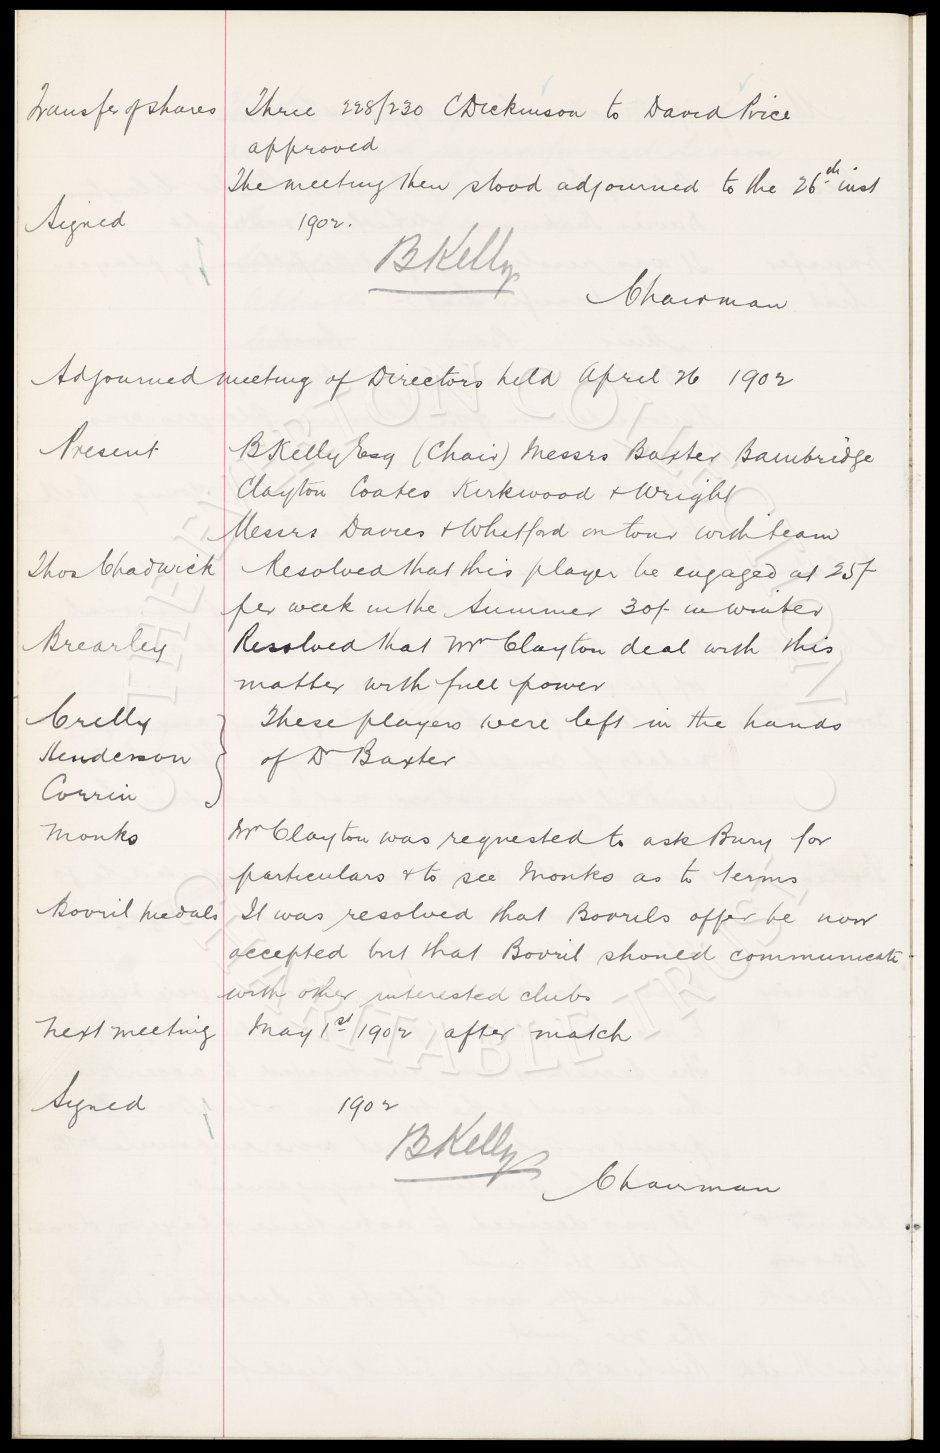 Transfer of shares Three 228/230 C Dickinson to David Price
approved
The meeting then stood adjourned to the 26th inst
Signed 1902.
B Kelly
Chairman
Adjourned meeting of Directors held April 26 1902
Present B Kelly Esq (Chair) Messrs Baxter Bainbridge
Clayton Coates Kirkwood & Wright
Messrs Davies & Whitford on tour with team
Thos Chadwick Resolved that this player be engaged at 25/-
per week in the Summer 30/- in winter
Brearley Resolved that Mr Clayton deal with this
matter with full power
Crelly These players were left in the hands
Henderson of Dr Baxter
Corrin
Monks Mr Clayton was requested to ask Bury for
particulars & to see Monks as to terms
Bovril Medals It was resolved that Bovrils offer be now
accepted but that Bovril should communicate
with other interested clubs
Next meeting May 1st 1902 after match
Signed 1902
B Kelly
Chairman
THE EVERTON COLLECTION
CHARITABLE TRUST